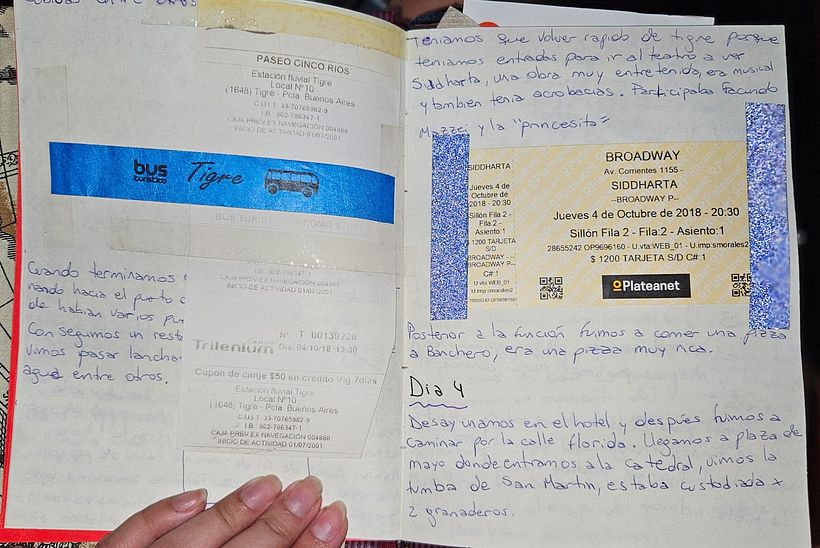 PASEO CINCO RIOS
Estación fluvial Tigre
Local Nº10
(1648) Tigre - Pcia. Buenos Aires
C.U.I.T. 33-70765982-9
I.B. 902-786347-1
CAJA PREV.EX NAVEGACIÓN 004868
INICIO DE ACTIVIDAD 01/07/2001
bus turistico Tigre
BUS TURIS PROMO
902-786347-1
CAJA PREV.EX NAVEGACIÓN 004868
INICIO DE ACTIVIDAD 01/07/2001
Cuando terminamos
nando hacia el puerto
de habian varios
Conseguimos un
vimos pasar lancha
agua entre otros.
Nº: T 00139226
Trilenium Dia: 04/10/18 13:30
Cupon de canje $50 en credito Vig.7dias
Estación fluvial Tigre
Local Nº10
(1648) Tigre - Pcia. Buenos Aires
C.U.I.T. 33-70765982-9
I.B. 902-786347-1
CAJA PREV.EX NAVEGACIÓN 004868
INICIO DE ACTIVIDAD 01/07/2001
Teniamos que volver rapido de tigre porque
teniamos entradas para ir al teatro a ver
Siddharta, una obra muy entretenida, era musical
y tambien tenia acrobacias. Participaba Facundo
Mazzei y la "princesita"
SIDDHARTA
Jueves 4 de
Octubre de
2018 - 20:30
Sillón Fila 2 -
Fila:2 -
Asiento:1
$ 1200 TARJETA
S/D
BROADWAY -
BROADWAY P--
C#:1
U.vta:WEB_01
U.imp:smorales2
28655242 OP9696160
BROADWAY
Av. Corrientes 1155 -
SIDDHARTA
--BROADWAY P--
Jueves 4 de Octubre de 2018 - 20:30
Sillón Fila 2 - Fila:2 - Asiento:1
28655242 OP9696160 - U.vta:WEB_01 - U.imp:smorales2
$ 1200 TARJETA S/D C#:1
Plateanet
Posterior a la función fuimos a comer una pizza
a Banchero, era una pizza muy rica.
Dia 4
Desayunamos en el hotel y despúes fuimos a
caminar por la calle florida. Llegamos a plaza de
mayo donde entramos a la catedral, vimos la
tumba de San Martin, estaba custodiada x
2 granaderos.